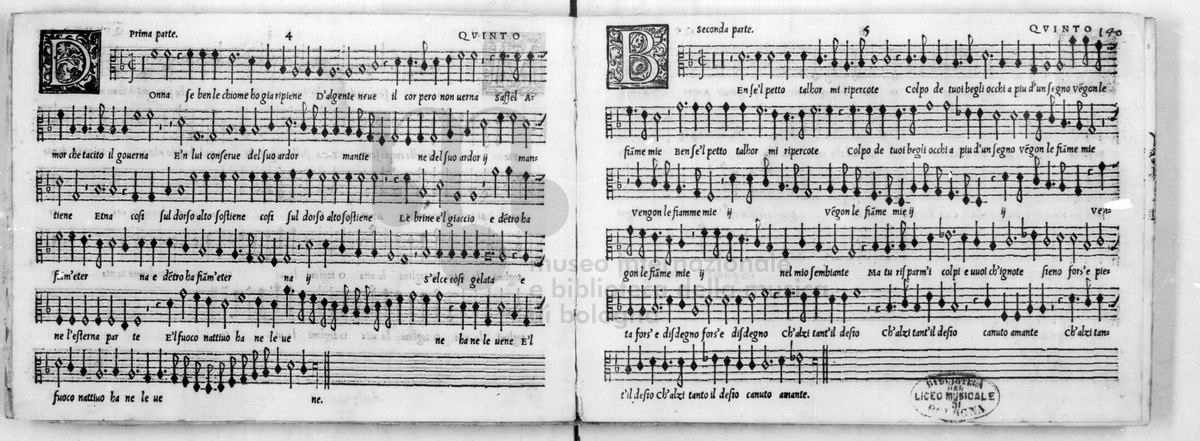 Prima parte. 4 QVINTO
D Onna se ben le chiome ho gia ripiene D'algente neue il cor pero non uerna Sassel A-
mor che tacito il gouerna E'n lui conserue del suo ardor mantie ne del suo ardor ij man-
tiene Etna cosi sul dorso alto sostiene cosi sul dorso alto sostiene Le brine e'l giaccio e dētro ha
fiam'eter na e dētro ha fiām'eter na ij s'elce cosi gelata e
ne l'esterna par te E'l fuoco nattiuo ha ne le ue ne ha ne le uene E'l
fuoco nattiuo ha ne le ue ne.
Seconda parte. 5 QVINTO 140
B En se'l petto talhor mi ripercote Colpo de tuoi begli occhi a piu d'un segno vēgon le
fiāme mie Ben se'l petto talhor mi ripercote Colpo de tuoi begli occhi a piu d'un segno vēgon le fiāme mie
Vengon le fiamme mie ij vēgon le fiāme mie ij ij ven-
gon le fiāme mie ij nel mio sembiante Ma tu risparm'i colpi e uuoi ch'ignote sieno fors'e pie-
ta fors'e disdegno fors'e disdegno Ch'alzi tant'il desio Ch'alzi tant'il desio canuto amante Ch'alzi tan-
t'il desio Ch'alzi tanto il desio canuto amante.
museo internazionale
e biblioteca della musica
di bologna
BIBLIOTECA
DEL
LICEO MUSICALE
DI
BOLOGNA